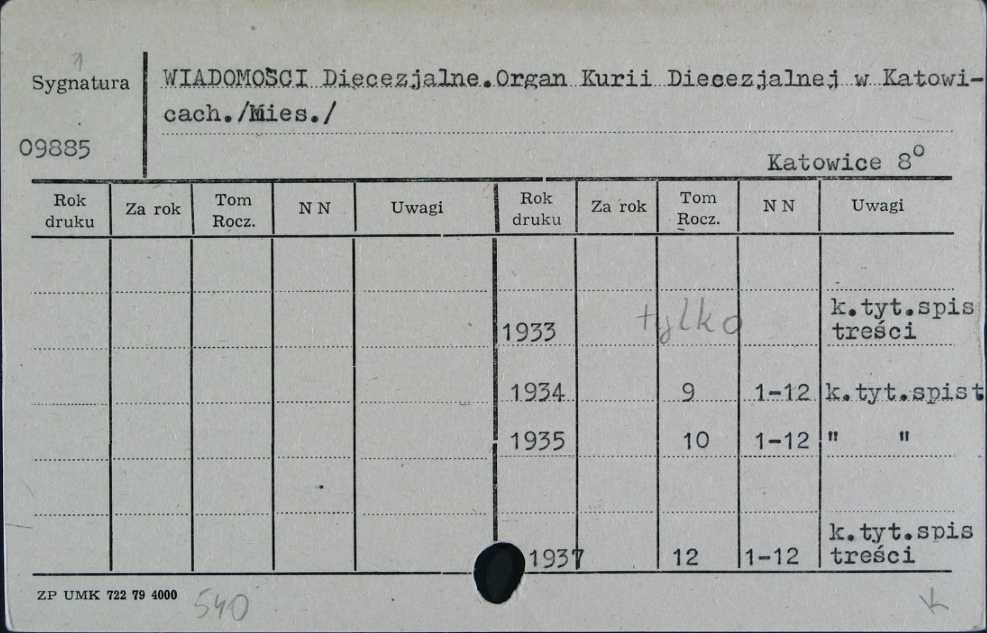 1
Sygnatura
09885
WIADOMOŚCI Diecezjalne.Organ Kurii Diecezjalnej w Katowi-
cach./Mies./
Katowice 8°
Rok druku Za rok Tom Rocz. N N Uwagi Rok druku Za rok Tom Rocz. N N Uwagi
1933 tylko k.tyt.spis
treści
1934 9 1-12 k.tyt.spist
1935 10 1-12 " "
1937 12 1-12 k.tyt.spis
treści
ZP UMK 722 79 4000 540
K